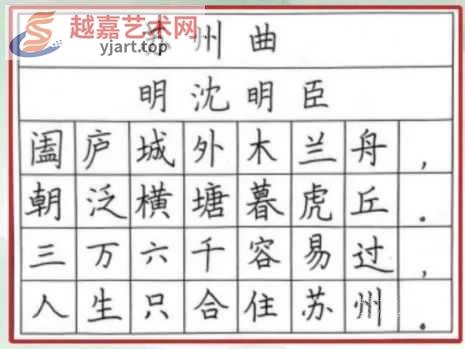 越嘉艺术网
yjart.top
州曲
明沈明臣
阖庐城外木兰舟，
朝泛横塘暮虎丘．
三万六千容易过，
人生只合住苏州．